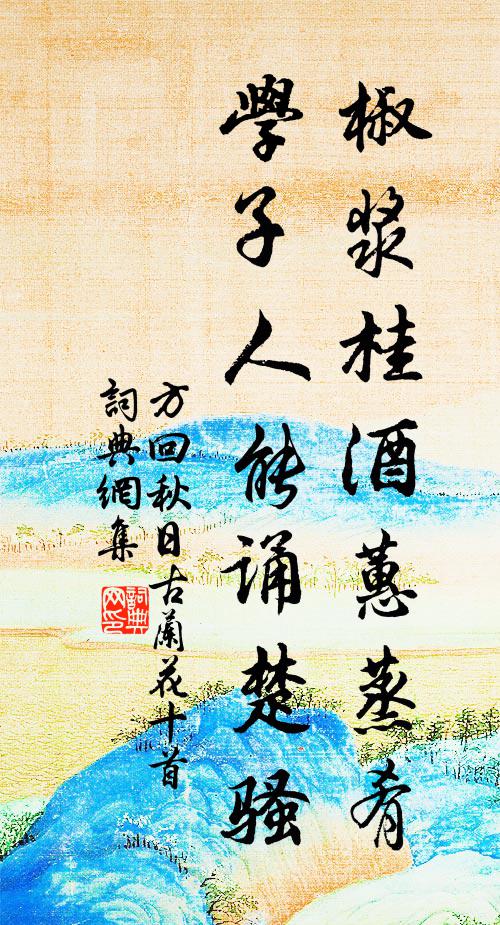 椒漿桂酒蕙蒸肴
學子人能誦楚騷
方回秋日古蘭花十首
詞典網集
詞典网印